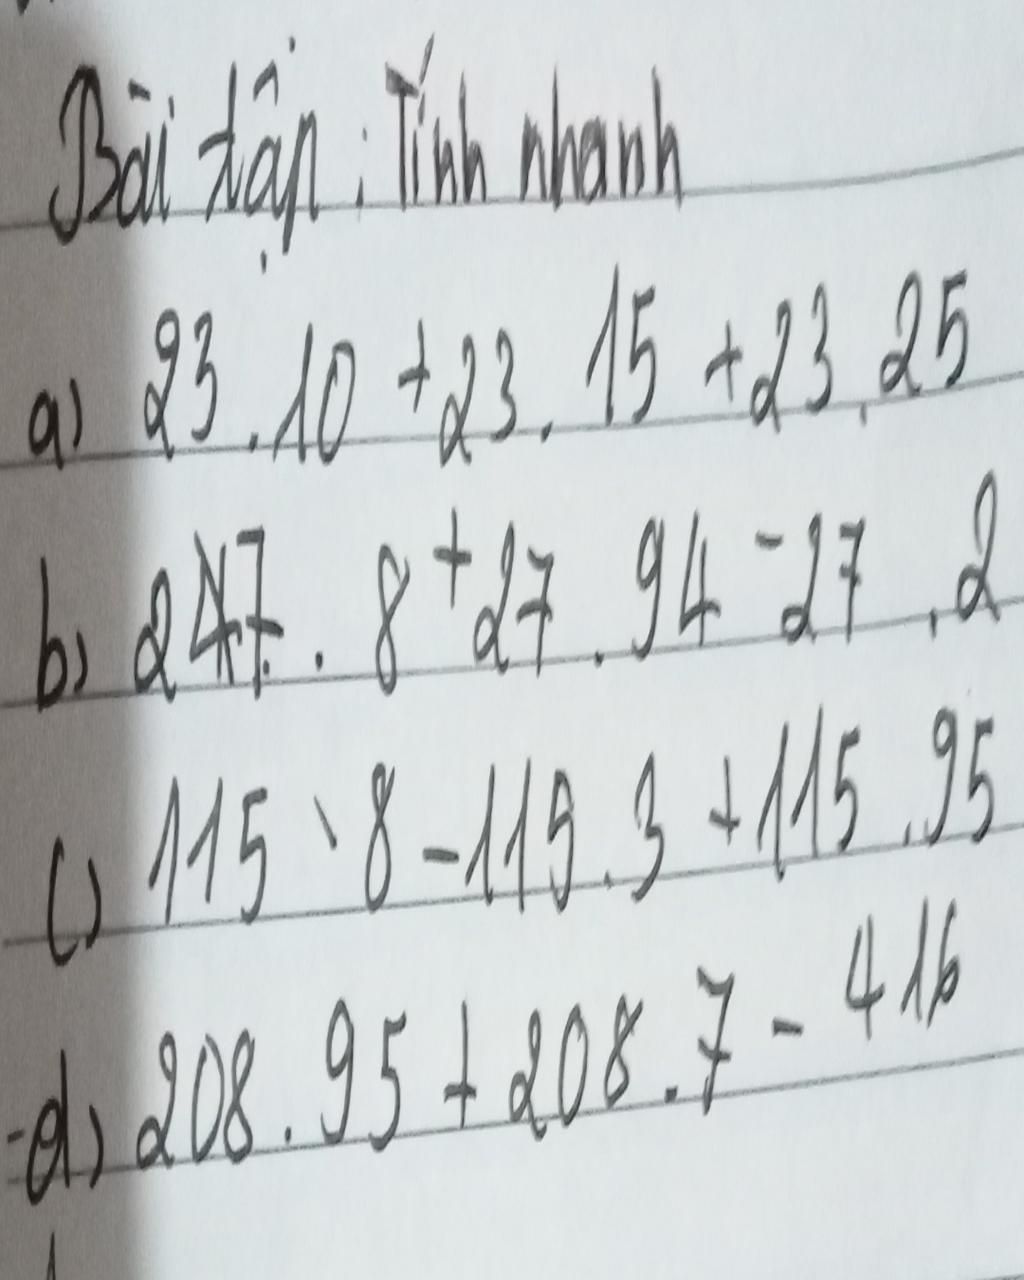 Bài tập: Tính nhanh
a) 23.10 + 23.15 + 23.25
b) 27.8 + 27.94 - 27.2
c) 115.8 - 115.3 + 115.95
d) 208.95 + 208.7 - 416